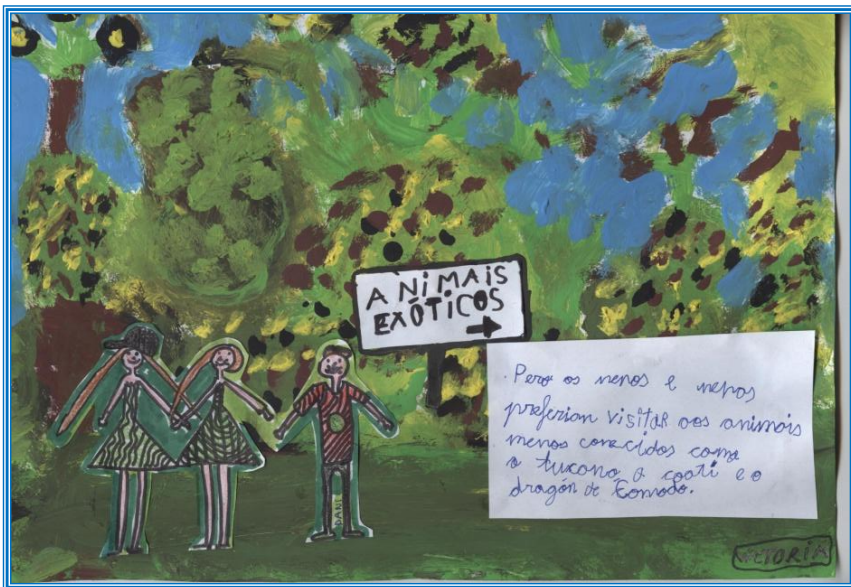 ANIMAIS
EXÓTICOS
Pero os nenos e nenas
preferían visitar aos animais
menos coñecidos como
o tucano o coati e o
dragón de Comodo.
DANI